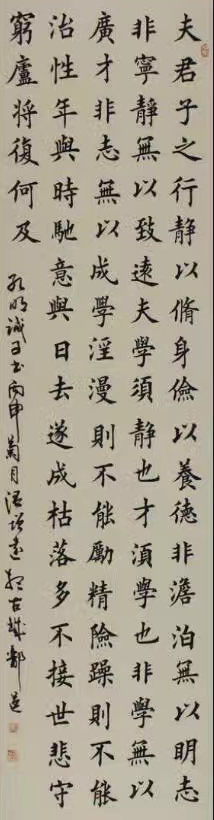 夫君子之行静以脩身儉以養德非澹泊無以明志
非寧靜無以致遠夫學須静也才湏學也非學無以
廣才非志無以成學淫漫則不能勵精險躁則不能
治性年與時馳意與日去遂成枯落多不接世悲守
窮廬將復何及
孔明誡子書丙申菊月